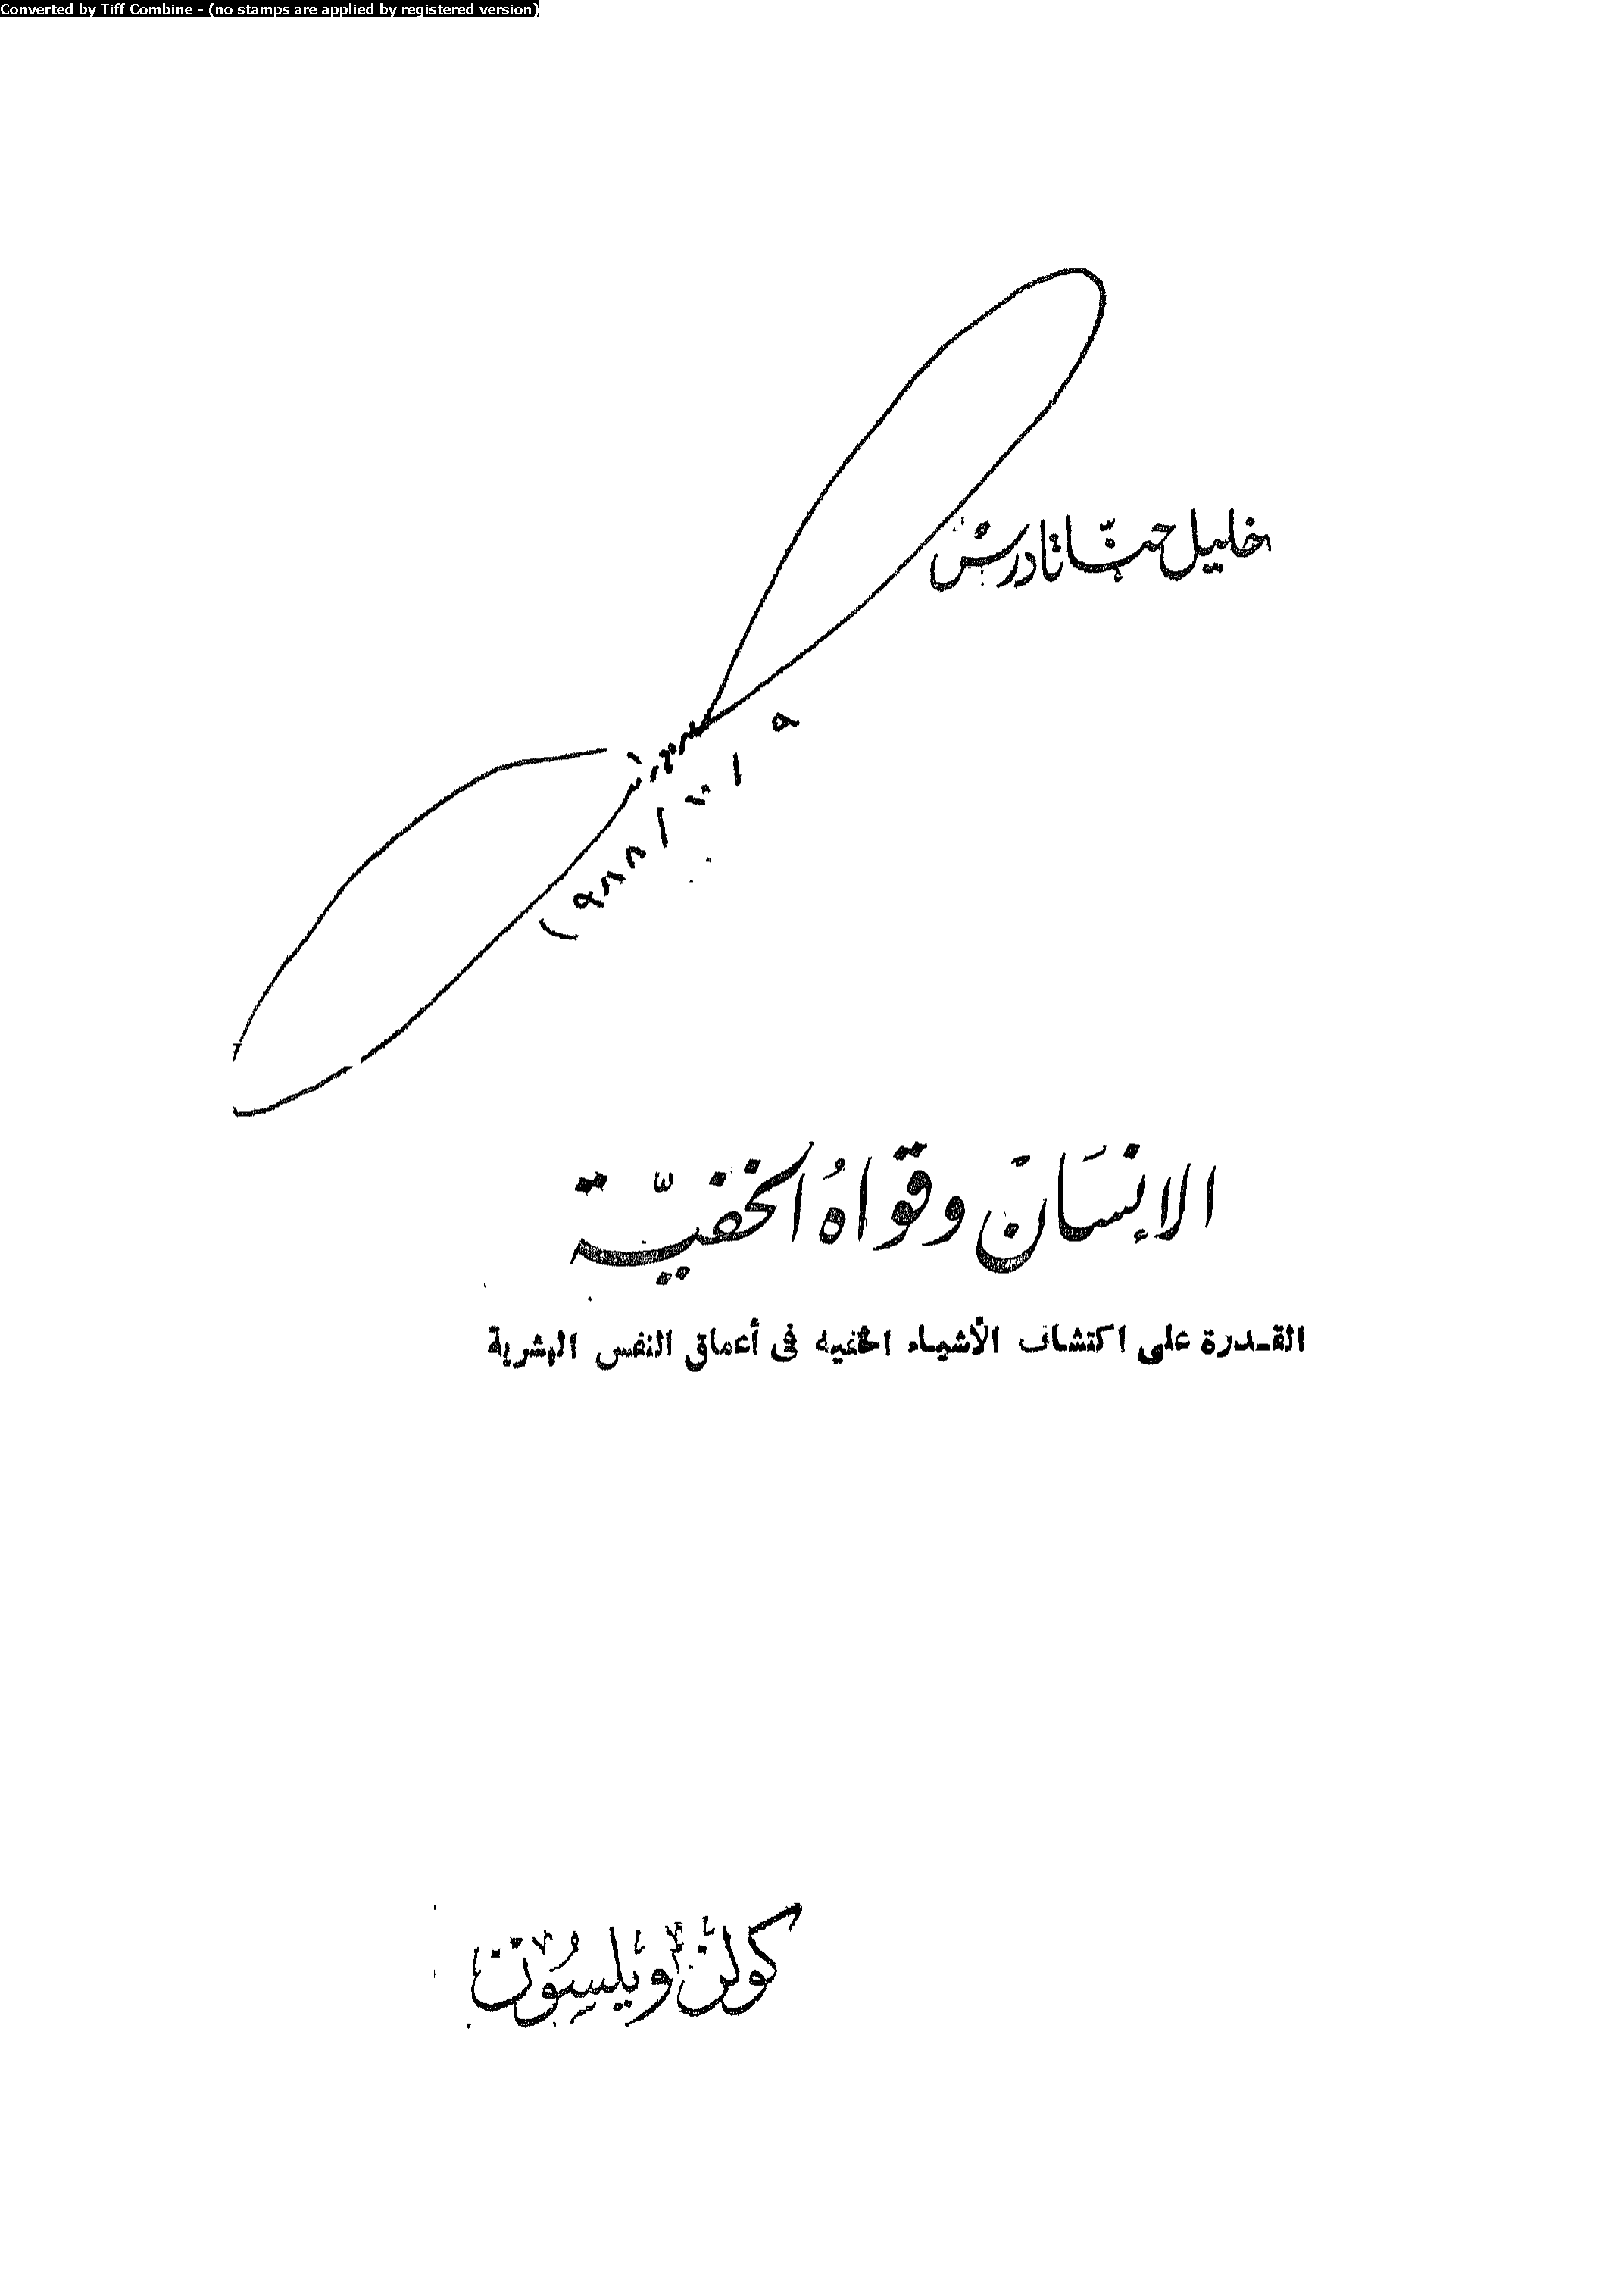 Converted by Tiff Combine - (no stamps are applied by registered version)
خليل حنّا تادرس
الإنسَان وقواهُ الخفيّة
القدرة على اكتشاف الأشياء الخفيه فى أعماق النفس البشرية
كولن ويلسون